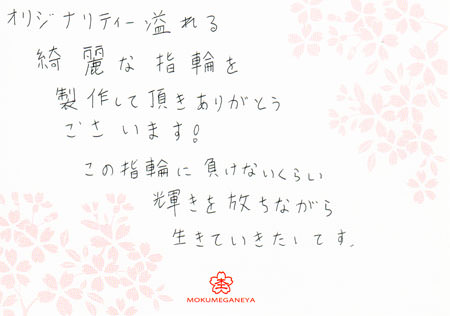 オリジナリティー溢れる
綺麗な指輪を
製作して頂きありがとう
ございます!
この指輪に負けないくらい
輝きを放ちながら
生きていきたいです。
MOKUMEGANEYA